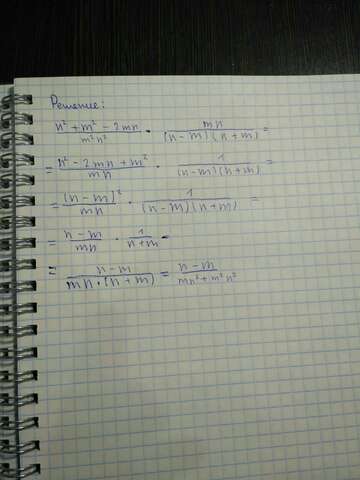 Решение:
(n² + m² − 2mn)/(m²n²) · (mn)/((n − m)(n + m)) =
= (n² − 2mn + m²)/(mn) · 1/((n − m)(n + m)) =
= (n − m)²/(mn) · 1/((n − m)(n + m)) =
= (n − m)/(mn) · 1/(n + m) =
= (n − m)/(mn · (n + m)) = (n − m)/(mn² + m²n²)